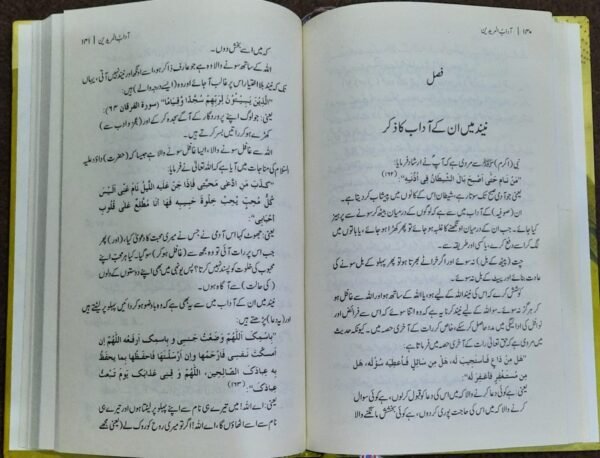 ۱۳۰ | آداب المریدین
فصل
نیند میں ان کے آداب کا ذکر
نبی (اکرم) ﷺ سے مروی ہے کہ آپ نے ارشاد فرمایا:
"مَنْ نَامَ حَتَّى أَصْبَحَ بَالَ الشَّيْطَانُ فِي أُذُنَيْهِ". (۶۲)
یعنی: جو آدمی صبح تک سوتا رہے، شیطان اس کے کانوں میں پیشاب کر دیتا ہے۔
ان (صوفیہ) کے آداب میں سے ہے کہ لوگوں کے درمیان بیٹھ کر سونے سے پرہیز
کیا جائے۔ جب ان کے درمیان اونگھنے کا غلبہ ہو جائے تو پھر کھڑا ہو جائے، یا باتوں میں
لگ کر اسے دفع کرے، یا کسی اور طریقہ سے۔
چت (پیٹھ کے بل) نہ سوئے اور اگر خراٹے بھرتا ہو تو پھر پہلو کے بل سونے کی
عادت بنائے اور پیٹ کے بل نہ سوئے۔
کوشش کرے کہ اس کی نیند اللہ کے لیے ہو، یا اللہ کے ساتھ ہو اور اللہ سے غافل ہو
کر ہرگز نہ سوئے۔ سو اس کی نیند اللہ کے لیے یہ ہے کہ وہ اتنا سوئے کہ اس سے فرائض اور
نوافل کی ادائیگی میں مدد حاصل کر سکے، خاص کر رات کے آخری حصہ میں۔ کیونکہ حدیث
میں مروی ہے کہ حق تعالیٰ رات کے آخری حصہ میں فرماتا ہے:
"هَل مِنْ دَاعٍ فَاسْتَجِيبَ لَه، هَل مِن سَائِلٍ فَأُعْطِيهِ سُؤْلَه، هَل
مِن مُسْتَغْفِرٍ فَأَغْفِرَ لَه".
یعنی: ہے کوئی دعا کرنے والا کہ میں اس کی دعا کو قبول کر لوں، ہے کوئی سوال
کرنے والا کہ میں اس کی حاجت پوری کر دوں، ہے کوئی بخشش مانگنے والا
آداب المریدین | ۱۳۱
کہ میں اسے بخش دوں۔
اللہ کے ساتھ سونے والا وہ ہے جو عارف ذاکر ہو، اسے اونگھ اور نیند نہیں آتی، یہاں
تک کہ نیند بلا اختیار اس پر غالب آ جائے اور وہ (ایسے ہیں):
"الَّذِيْنَ يَبِيْتُوْنَ لِرَبِّهِمْ سُجَّدًا وَّقِيَامًا" (سورۃ الفرقان ۶۴)
یعنی: جو لوگ اپنے پروردگار کے آگے سجدہ کر کے اور (عجز و ادب سے)
کھڑے ہو کر راتیں بسر کرتے ہیں۔
اللہ سے غافل سونے والا، ایسا غافل سونے والا ہے جیسا کہ (حضرت) داؤد علیہ
السلام کی مناجات میں آیا ہے کہ اللہ تعالیٰ نے فرمایا:
"كَذَبَ مَنِ ادَّعَى مَحَبَّتِي فَإِذَا جَنَّ عَلَيهِ اللَّيلُ نَامَ عَنِّي أَلَيْسَ
كُلُّ مُحِبٍّ يُحِبُّ خِلْوَةَ حَبِيبِهِ فَهَا أَنَا مُطَّلِعٌ عَلَى قُلُوبِ
أَحِبَّائِي".
یعنی: جھوٹ کہا اس آدمی نے جس نے میری محبت کا دعویٰ کیا، (اور) پھر
جب اس پر رات آئی تو وہ مجھ سے (غافل ہو کر) سو گیا۔ کیا ہر محب اپنے
محبوب کی خلوت کو پسند نہیں کرتا؟ پس یونہی میں بھی اپنے دوستوں کے دلوں
(کی حالت) سے آگاہ ہوں۔
نیند میں ان کے آداب میں سے یہ بھی ہے کہ وہ باوضو ہو کر دائیں پہلو پر لیٹتے ہیں
اور (یہ دعا) پڑھتے ہیں:
"بِاسمِكَ اللَّهُمَّ وَضَعْتُ جَنبِي وَ بِاسمِكَ أَرفَعُه اللَّهُمَّ إِن
أَمسَكْتَ نَفسِي فَارْحَمْهَا وَإِن أَرْسَلْتَهَا فَاحفَظْهَا بِمَا يَحفَظُ
بِهِ عِبَادَكَ الصَّالِحِينَ، اللَّهُمَّ وَ قِنِي عَذَابَكَ يَومَ تَبعَثُ
عِبَادَكَ". (۶۳)
یعنی: اے اللہ! میں تیرے ہی نام سے اپنے پہلو پر لیٹتا ہوں اور تیرے ہی
نام سے اسے اٹھاؤں گا، اے اللہ! اگر تو میری روح کو روک لے (یعنی مجھے